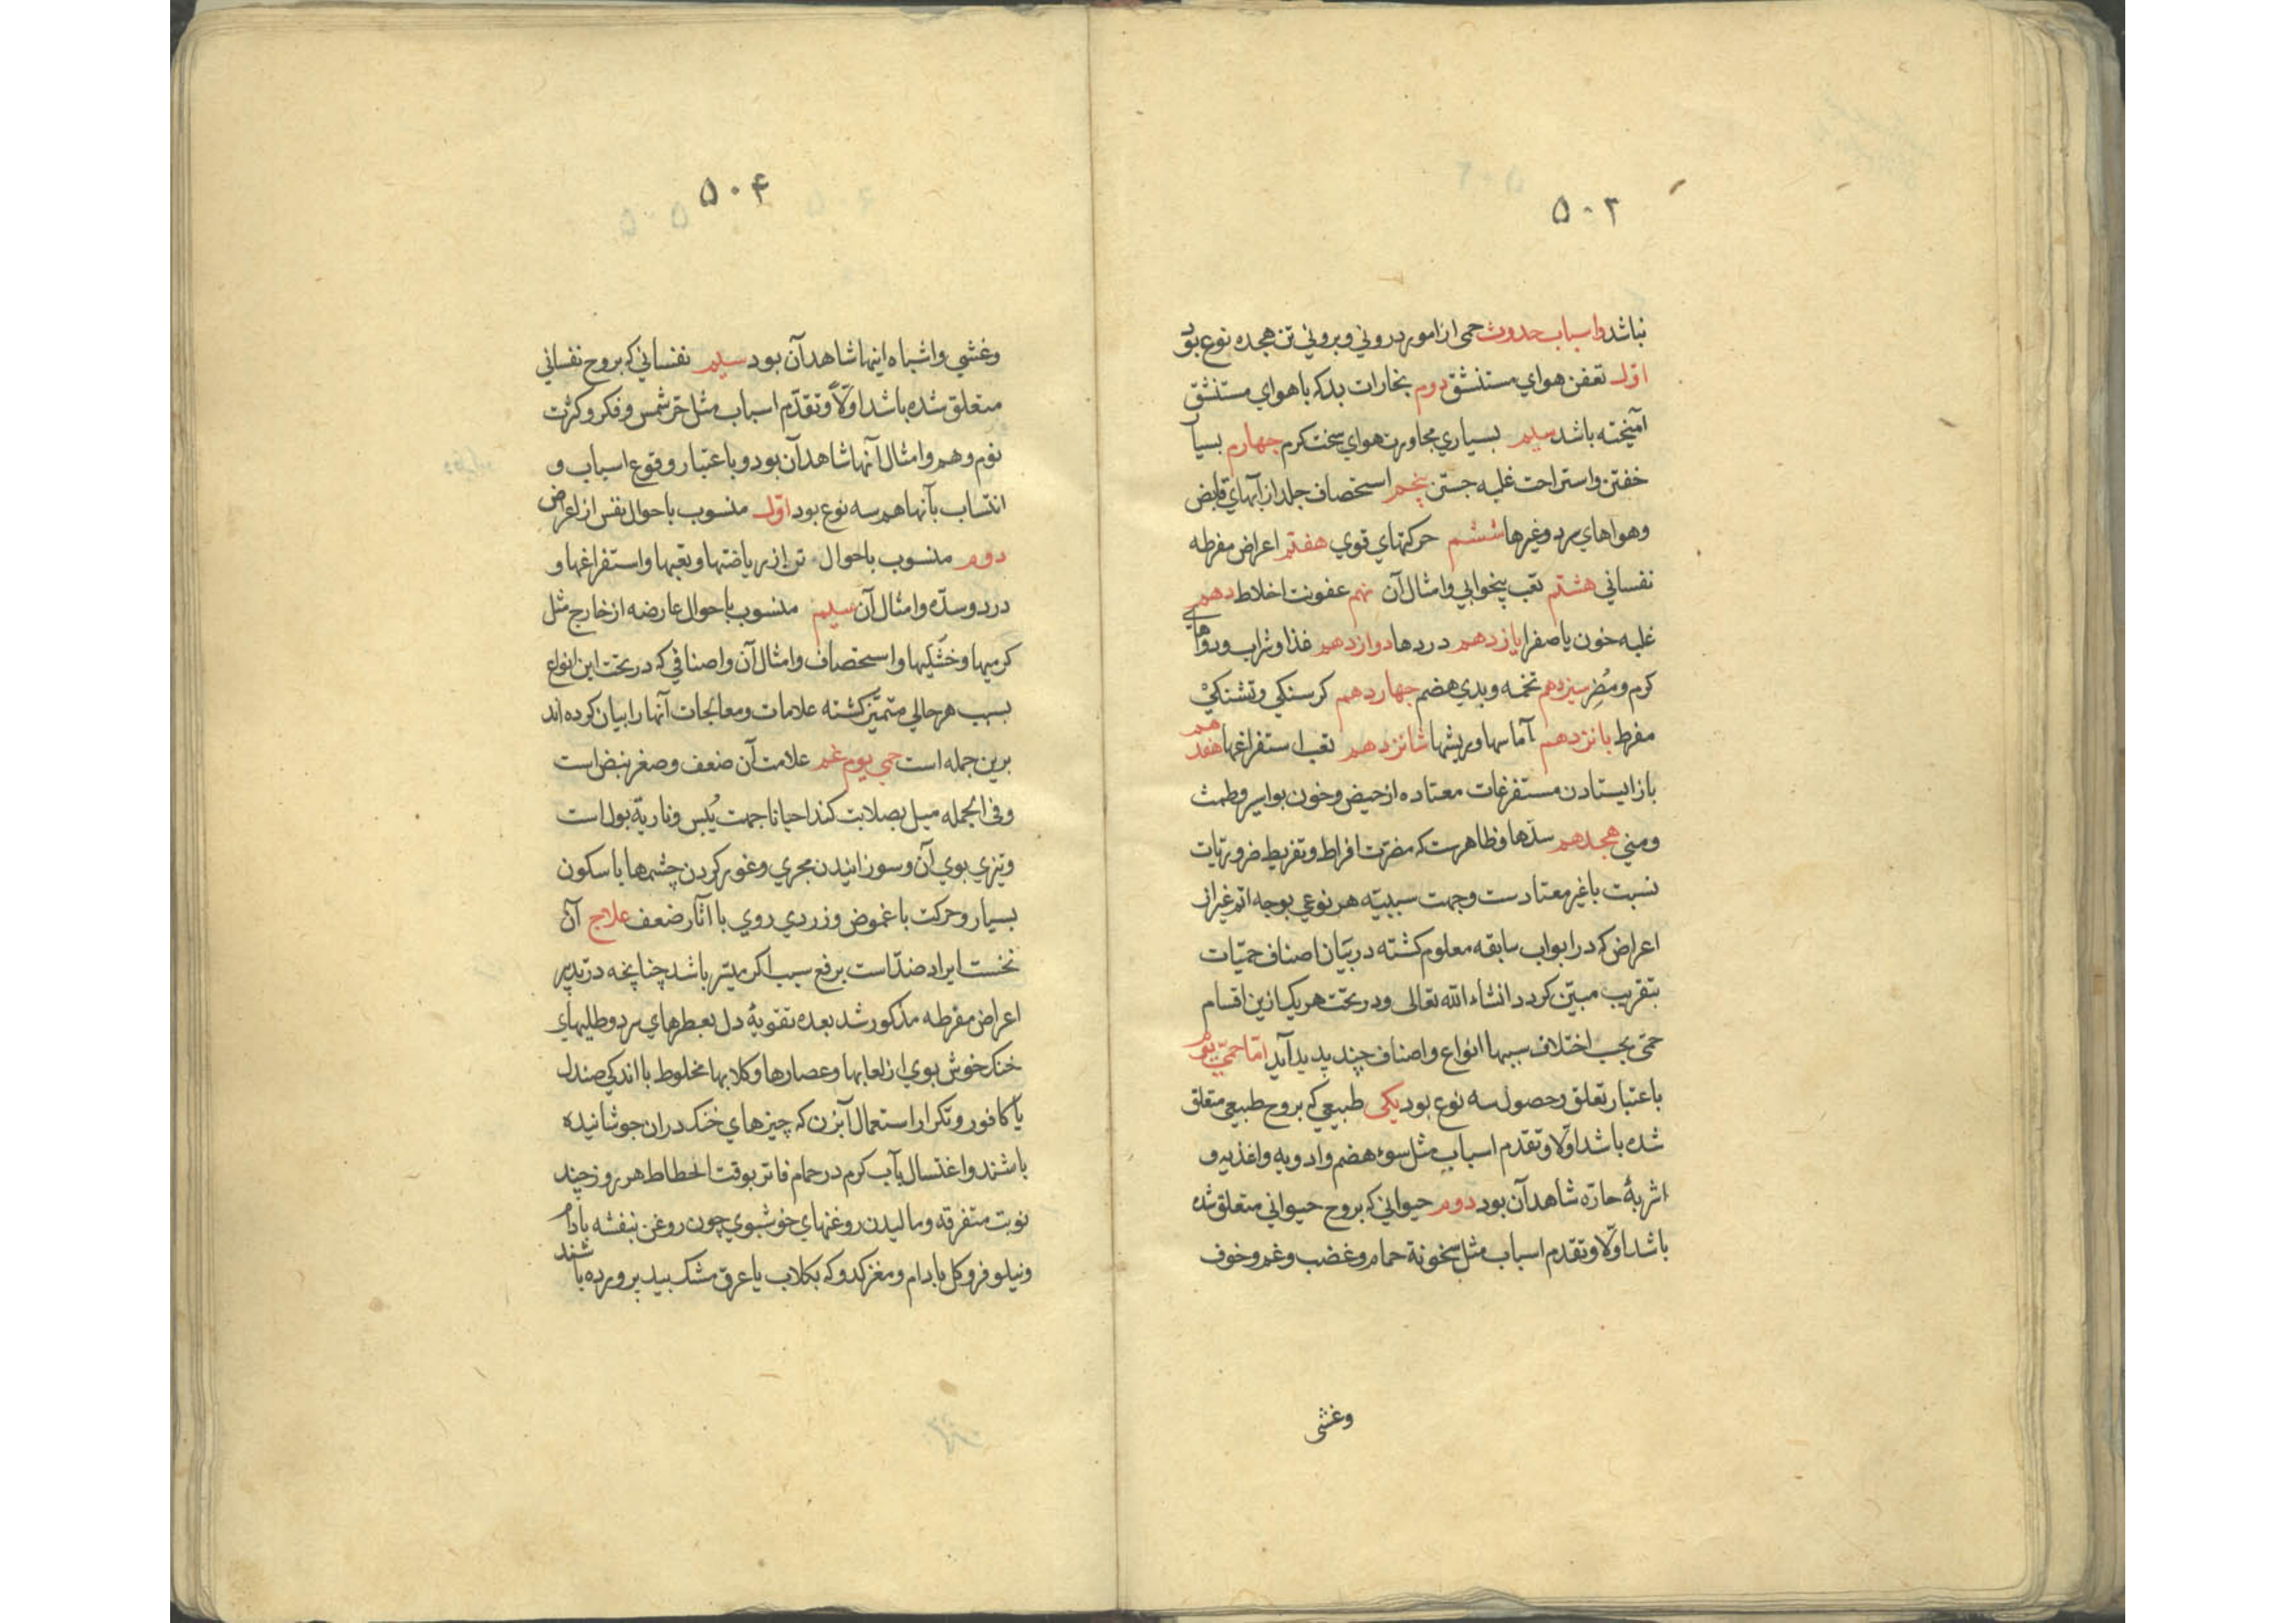 ۵۰۳
نباشد واسباب حدوث حمی از امور درونی و برونی تن هجده نوع بود
اوّل تعفن هوای مستنشق دوم بخارات بد که با هوای مستنشق
آمیخته باشد سیم بسیاری مجاورت هوای سخت کرم چهارم بسیا
خفتن و استراحت غلبه جستن پنجم استحصاف جلد از آبهای قابض
و هواهای سرد و غیرها ششم حرکتهای قوی هفتم اعراض مفرطه
نفسانی هشتم تعب بیخوابی و امثال آن نهم عفونت اخلاط دهم
غلبه خون یا صفرا یازدهم دردها دوازدهم غذا و شراب و دواهای
کرم و مُضِر سیزدهم تخمه و بدی هضم چهاردهم کرسنکی و تشنکی
مفرط پانزدهم آماسها و ریشها شانزدهم تعب استفراغها هفدهم
باز ایستادن مستفرغات معتاده از حیض و خون بواسیر و طمث
و منی هجدهم سدّها و ظاهرست که مضرّت افراط و تفریط ضروریّات
نسبت با غیر معتادست و جهت سببیّه هر نوعی بوجه اتم غیر از
اعراض که در ابواب سابقه معلوم کشته در بَیان اصناف حمیّات
بتقریب مبیّن کردد انشاء الله تعالی و در تحت هر یک ازین اقسام
حمّی بحسب اختلاف سببها انواع و اصناف چند پدید آید امّا حمّی یوم
باعتبار تعلق و حصول سه نوع بود یکی طبیعی که بروح طبیعی متعلق
شده باشد اوّلا و تقدم اسباب مثل سوء هضم و ادویه و اغذیه و
اشربهٔ حارّه شاهد آن بود دوم حیوانی که بروح حیوانی متعلق شده
باشد اوّلا و تقدم اسباب مثل سخونة حمام و غضب و غم و خوف
وغشی
۵۰۴
وغشی و اشباه اینها شاهد آن بود سیم نفسانی که بروح نفسانی
متعلق شده باشد اوّلاً و تقدّم اسباب مثل حرّ شمس و فکر و کثرت
نوم و هم و امثال آنها شاهد آن بود و باعتبار وقوع اسباب و
انتساب بآنها هم سه نوع بود اوّل منسوب باحوال نفس از اعراض
دوم منسوب باحوال تن از ریاضتها و تعبها و استفراغها و
درد و سدّه و امثال آن سیم منسوب باحوال عارضه از خارج مثل
کرمیها و خشکیها و استحصاف و امثال آن و اصنافی که در تحت این انواع
بسبب هر حالی متمیّز کشته علامات و معالجات آنها را بیان کرده اند
برین جمله است حمی یوم غم علامت آن ضعف و صغر نبض است
و فی الجمله میل بصلابت کند احیانا جهت یُبس و ناریّة بول است
و تیزی بوی آن و سوزانیدن مجری و غور کردن چشمها با سکون
بسیار و حرکت با غموض و زردی روی با آثار ضعف علاج آن
نخست ایراد ضدّ است برفع سبب اکر میسّر باشد چنانچه در تدبیر
اعراض مفرطه مذکور شد بعده تقویهٔ دل بعطرهای سرد و طلیهای
خنک خوش بوی از لعابها و عصارها و کلابها مخلوط با اندکی صندل
یا کافور و تکرار استعمال آبزن که چیزهای خنک دران جوشانیده
باشند و اغتسال بآب کرم در حمام فاتر بوقت انحطاط هر روز چند
نوبت متفرقه و مالیدن روغنهای خوشبوی چون روغن بنفشه بادام
و نیلوفر و کل بادام و مغز کدو که بکلاب یا عرق مشک بید پرورده باشند